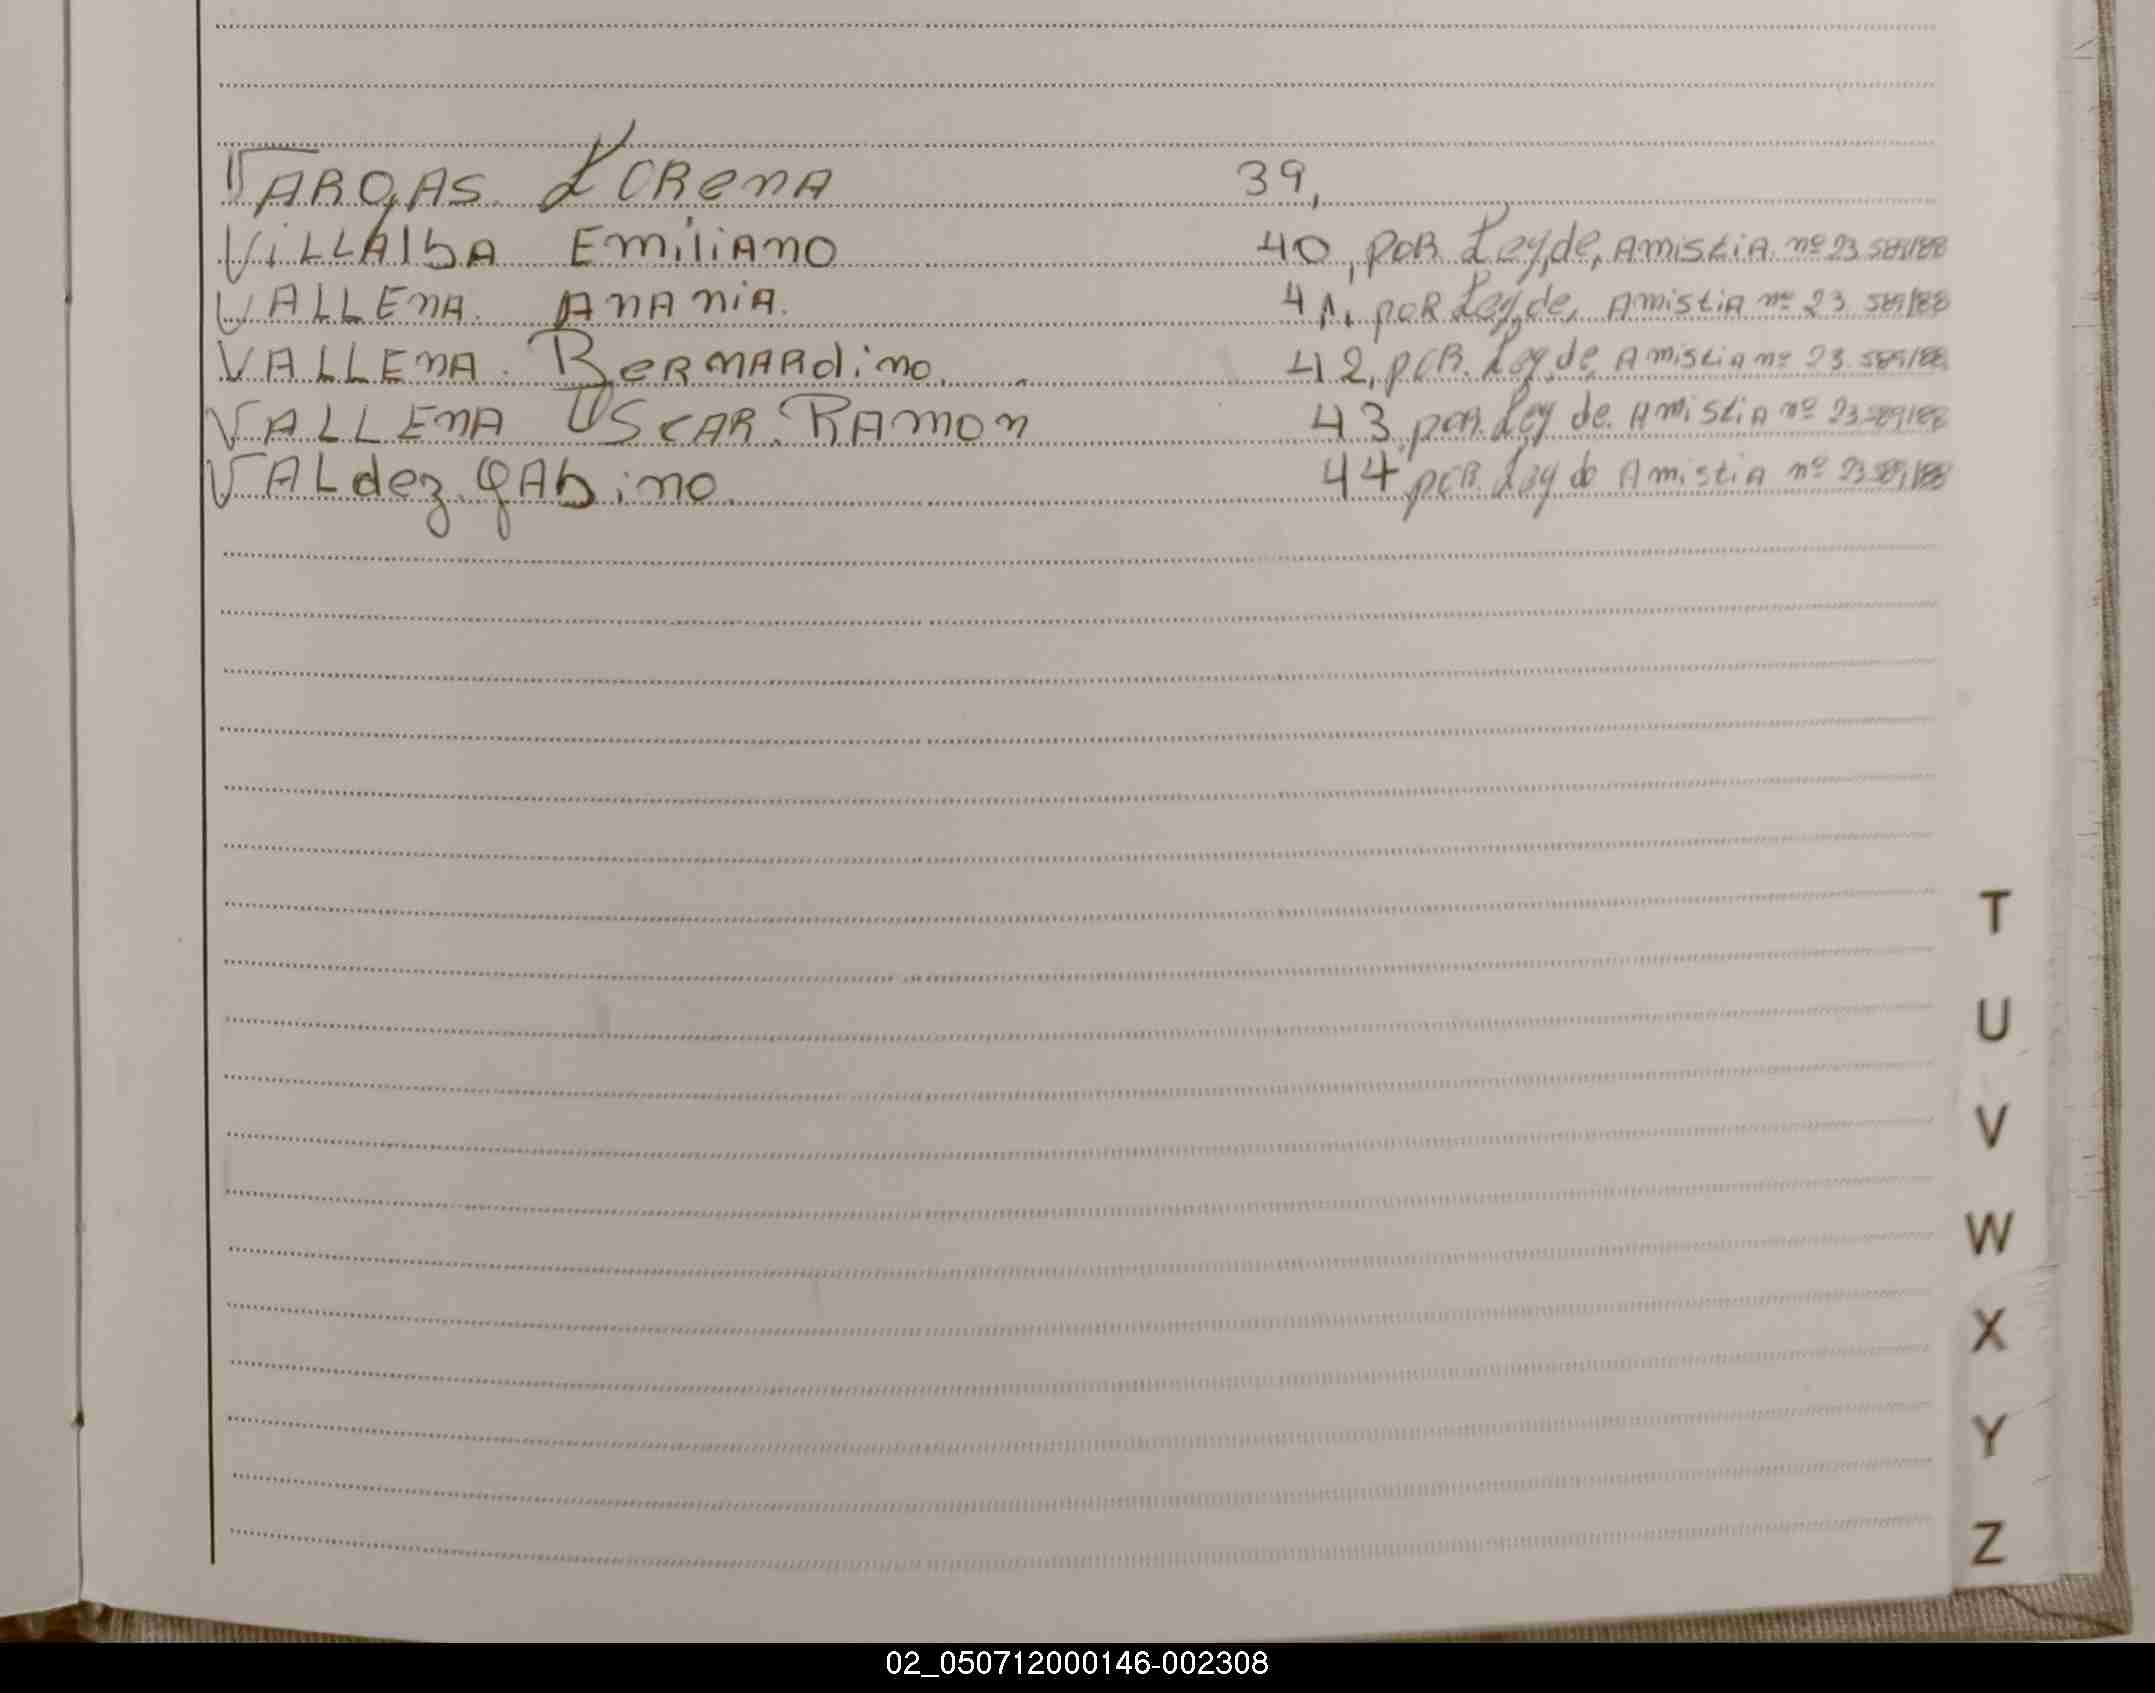 VARGAS. LORENA 39,
VILLALBA EMILIANO 40, POR Ley, de, AMISTIA. nº 23.589/88
VALLENA. ANANIA. 41, POR Ley, de, AMISTIA nº 23.589/88
VALLENA. BERNARDINO. 42, POR. Ley, de, AMISTIA nº 23.589/88
VALLENA OSCAR. RAMON 43, POR. Ley de. AMISTIA nº 23.589/88
VALdez. GABINO. 44, POR. Ley de AMISTIA nº 23.589/88
T
U
V
W
X
Y
Z
02_050712000146-002308